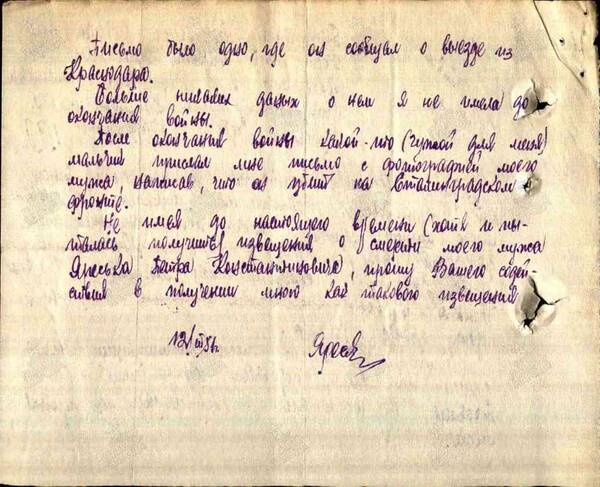 Письмо было одно, где он сообщал о выезде из
Краснодара.
Больше никаких данных о нем я не имела до
окончания войны.
После окончания войны какой-то (чужой для меня)
мальчик прислал мне письмо с фотографией моего
мужа, написав, что он убит на Сталинградском
фронте.
Не имея до настоящего времени (хотя и пы-
талась получить) извещения о смерти моего мужа
Яреська Петра Константиновича, прошу Вашего содей-
ствия в получении мною как такового извещения